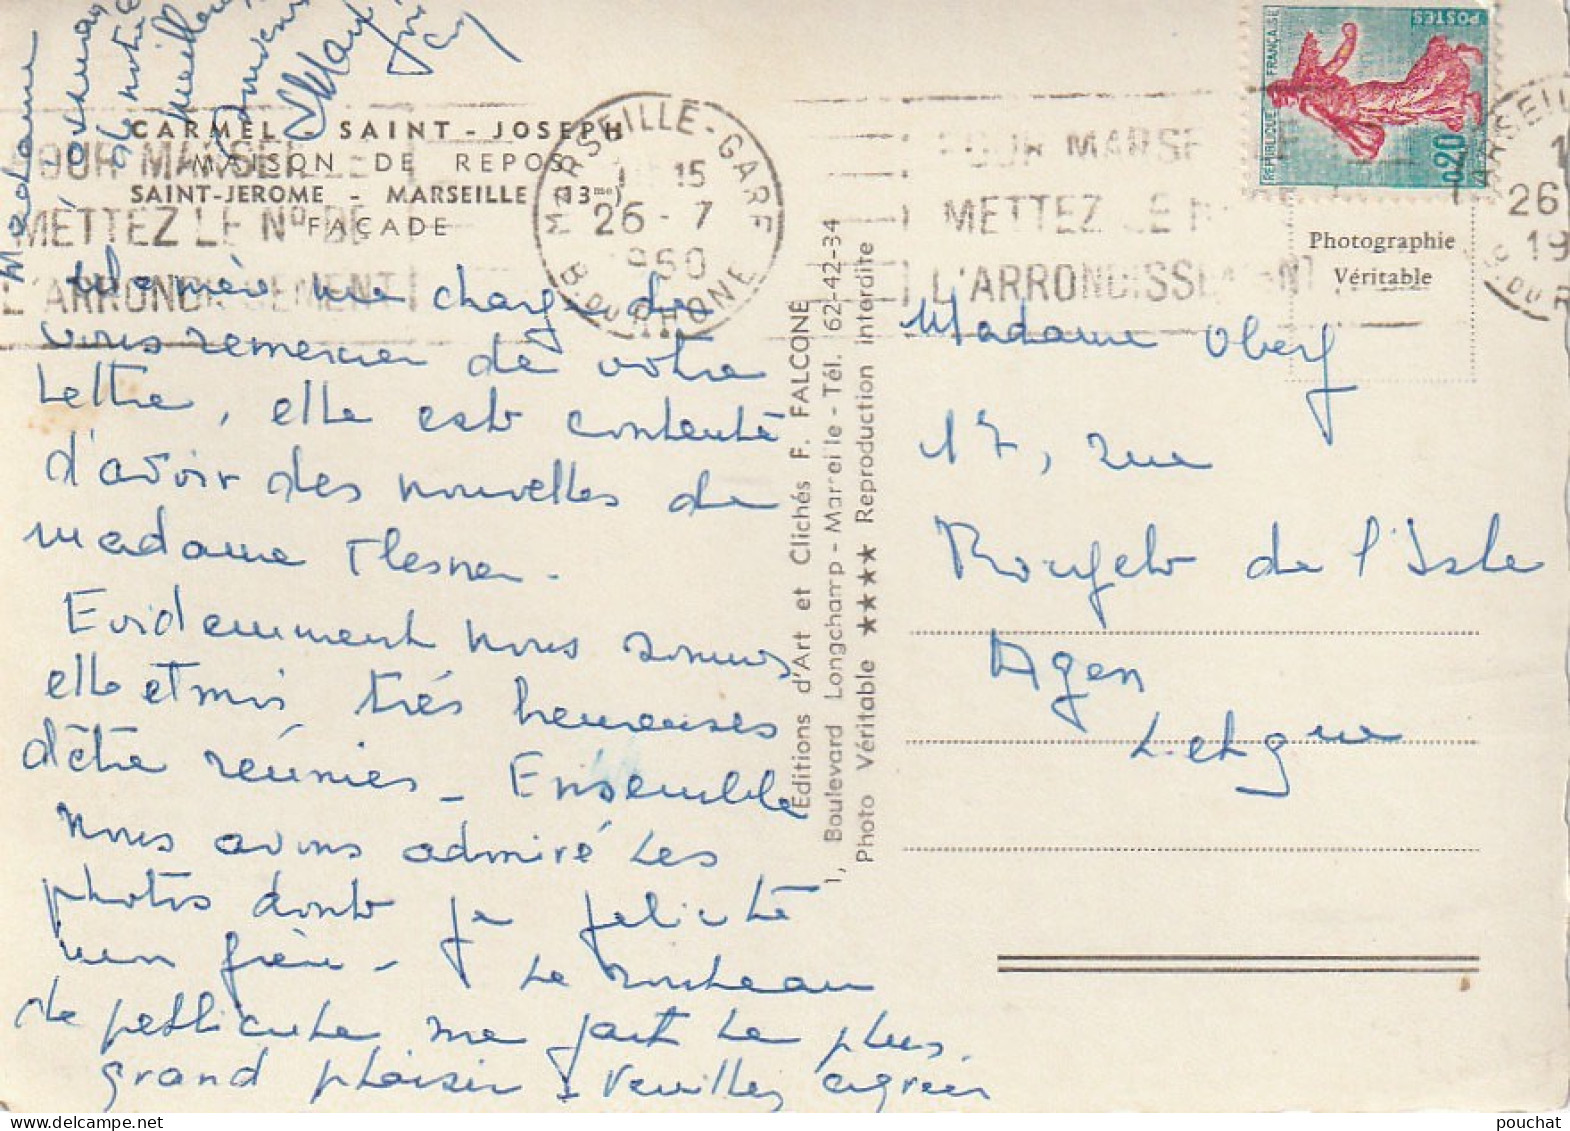 CARMEL - SAINT - JOSEPH
MAISON DE REPOS
SAINT-JEROME - MARSEILLE (13me)
FAÇADE
POUR MARSEILLE
METTEZ LE No DE
L'ARRONDISSEMENT
MARSEILLE-GARE
15
26 - 7
1960
B. DU RHONE
POUR MARSE
METTEZ LE N
L'ARRONDISSEMENT
POSTES
REPUBLIQUE FRANÇAISE
0,20
MARSEILLE
26
19
B. DU R
Photographie
Véritable
mère me charge de
vous remercier de votre
lettre, elle est contente
d'avoir des nouvelles de
madame Flesner.
Evidemment nous sommes
elle et moi très heureuses
d'être réunies - Ensemble
nous avons admiré les
photos dont je félicite
mon frère - Le rouleau
de pellicule me fait le plus
grand plaisir - Veuillez agréer
Madame
de notre
meilleur
souvenir
Editions d'Art et Clichés F. FALCONE
1, Boulevard Longchamp - Marseille - Tél. 62-42-34
Photo Véritable ★★★★ Reproduction interdite
Madame Oberf
17, rue
Rouget de l'Isle
Agen
L et Gne
pouchat